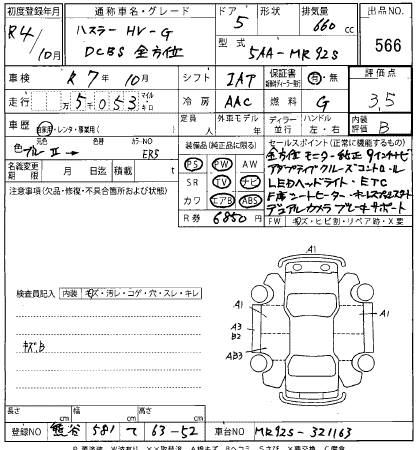 初度登録年月 通称車名・グレード ドア 形状 排気量 出品NO.
R4/10月 ハスラー HV-G 5 660cc 566
DCBS 全方位 型式 5AA-MR92S
車検 R7年10月 シフト IAT 保証書 有・無 評価点
走行 5万5053 マイル キロ 冷房 AAC 燃料 G 3,5
車歴 自家用・レンタ・事業用( ) 定員 人 外車モデル 年 ディーラー 並行 ハンドル 左・右 内装評価 B
色 元色 ブルーⅡ 色替 カラーNO ER5
装備品(純正品に限る) セールスポイント(正常に機能するもの)
名義変更期限 月 日迄 積載 t
PS PW AW
SR TV ナビ
カワ エアB ABS
R券 6850円
全方位モニター純正9インチナビ
アダプティブクルーズコントロール
LEDヘッドライト・ETC
F席シートヒーター・キーレスプッシュスタート
デュアルカメラブレーキサポート
注意事項(欠品・修復・不具合箇所および状態)
FW キズ・ヒビ割・リペア跡・X要
検査員記入 内装 キズ・汚レ・コゲ・穴・スレ・キレ
キズB
A1
A1 A1
A3
B2
AB3 A1
長さ cm 幅 cm 高さ cm
登録NO 熊谷 581 て 63-52 車台NO MR92S-321163